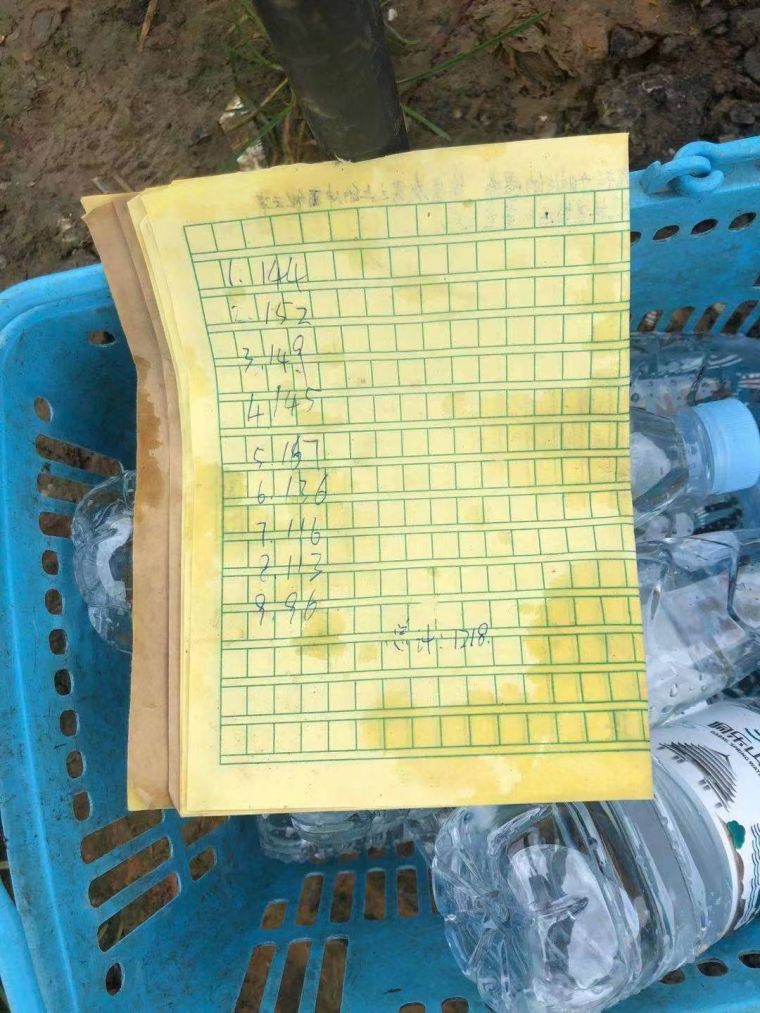 1. 144
2. 152
3. 149
4. 145
5. 167
6. 136
7. 116
8. 113
9. 96
总计: 1218